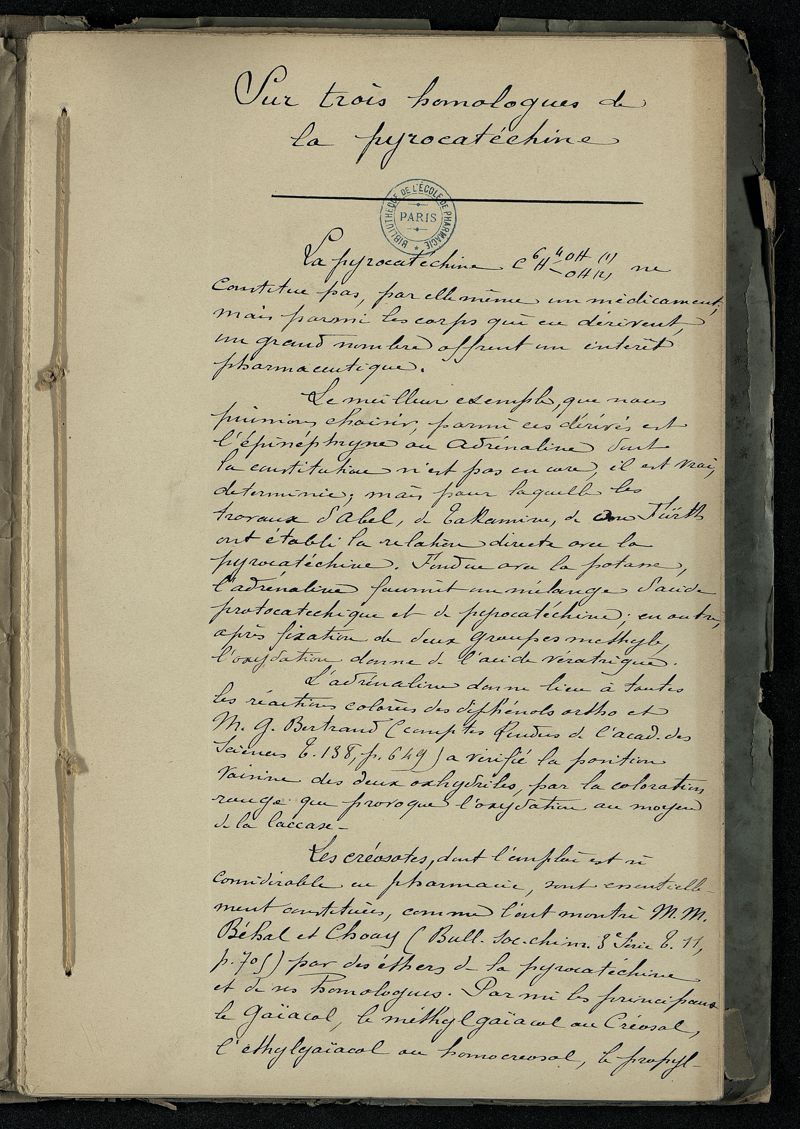 Sur trois homologues de
la pyrocatéchine
BIBLIOTHÈQUE DE L'ÉCOLE DE PHARMACIE
PARIS
La pyrocatéchine C⁶H⁴ OH (1) OH (2) ne
constitue pas, par elle même un médicament,
mais parmi les corps qui en dérivent,
un grand nombre offrent un intérêt
pharmaceutique.
Le meilleur exemple, que nous
puissions choisir, parmi ces dérivés est
l'épinéphryne ou adrénaline dont
la constitution n'est pas encore, il est vrai,
determinée; mais pour laquelle les
travaux d'Abel, de Takamine, de Fürth
ont établi la relation directe avec la
pyrocatéchine. Fondue avec la potasse,
l'adrénaline fournit un mélange d'acide
protocatechique et de pyrocatéchine; en outre,
après fixation de deux groupes methyle,
l'oxydation donne de l'acide vératrique.
L'adrénaline donne lieu à toutes
les réactions colorées des diphénols ortho et
M. G. Bertrand (Comptes Rendus de l'acad. des
Sciences t. 138, p. 649) a vérifié la position
voisine des deux oxhydriles, par la coloration
rouge que provoque l'oxydation au moyen
de la laccase –
Les créosotes, dont l'emploi est si
considérable en pharmacie, sont essentielle-
ment constituées, comme l'ont montré M. M.
Béhal et Choay (Bull. soc. chim. 3e Série t. 11,
p. 705) par des éthers de la pyrocatéchine
et de ses homologues. Parmi les principaux
le Gaïacol, le méthylgaïacol ou Créosol,
l'éthylgaïacol ou homocreosol, le propyl-